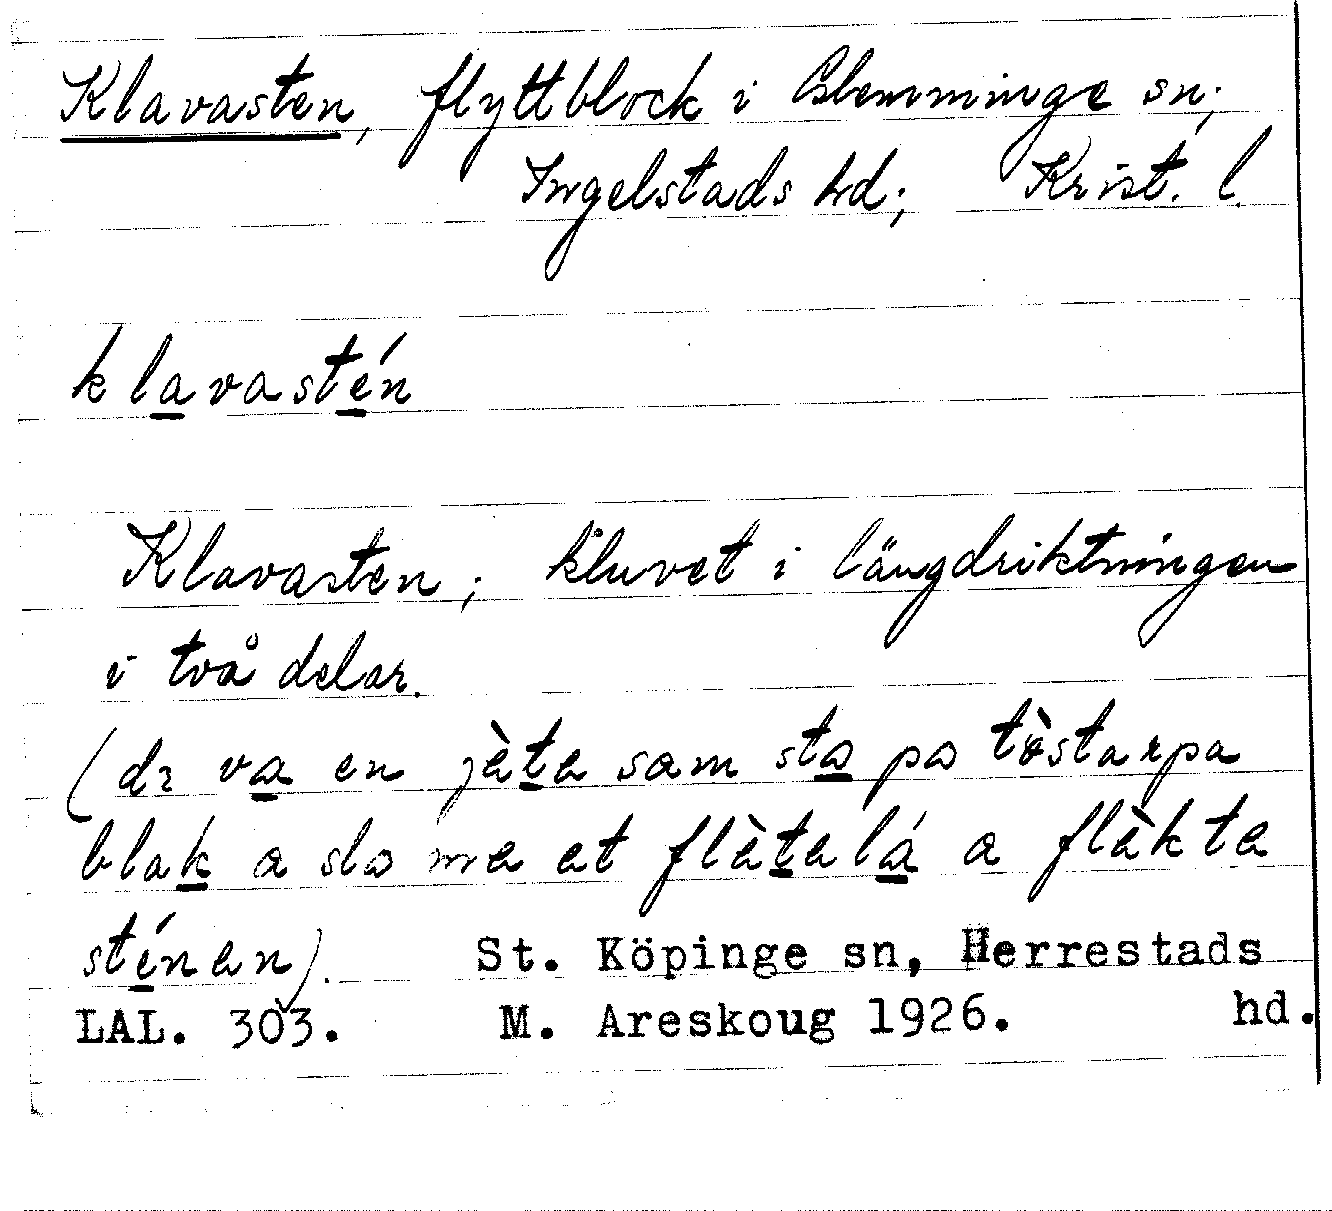 Klavasten, flyttblock i Glemminge sn;
Ingelstads hd; Krist. l.
klavastén
Klavasten; kluvet i längdriktningen
i två delar.
(dr va en jèta sam sto po tòstarpa
blak a slo me et flètalá a flèkta
sténen).
St. Köpinge sn, Herrestads
hd.
LAL. 303. M. Areskoug 1926.